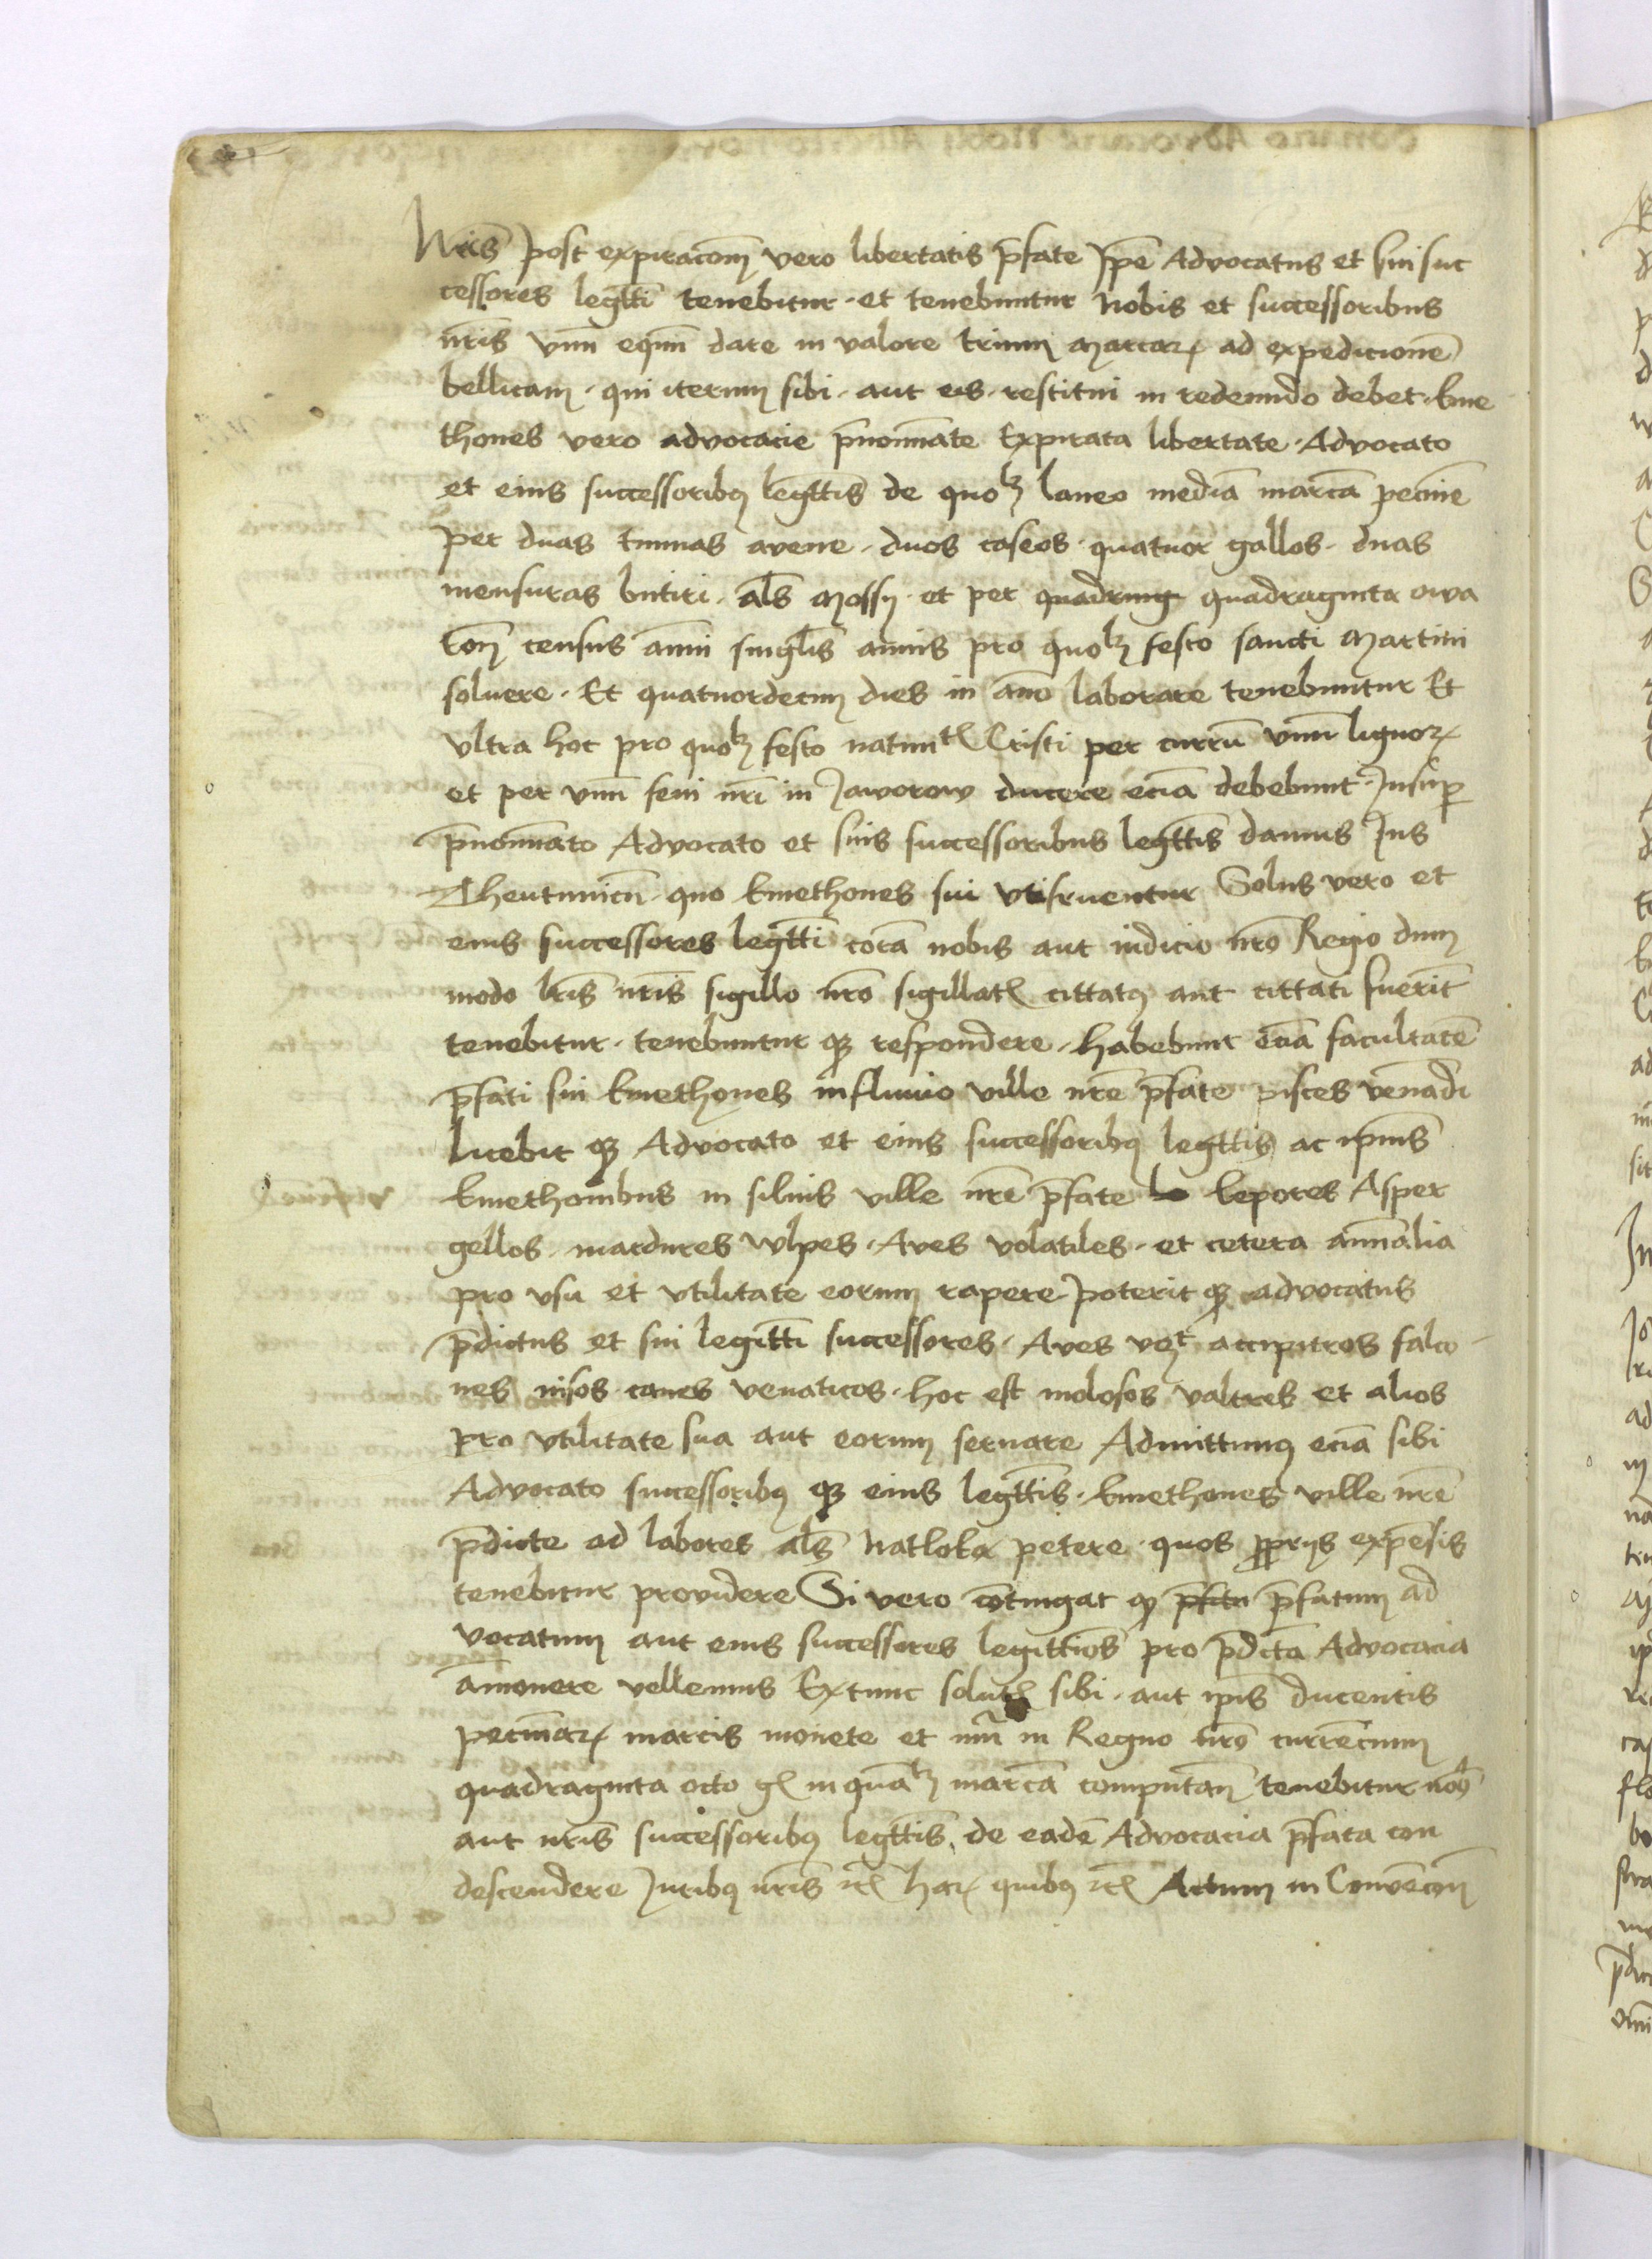 nr̄is post expirac̄oem vero libertatis p̄fate Ip̄e Advocatus et sui suc
cessores legitt̄i tenebitur · et tenebuntur nobis et successoribus
nr̄is vnū equū dare in valore trium Marcarꝝ ad expedicionē
bellicam · qui iterum sibi · aut eis · restitui in redeundo debet · kme
thones vero advocacie p̄nomīate Expirata libertate · Advocato
et eius successoribꝰ legitt̄is de quolꝫ laneo mediā marcā pecūie
per duas tunnas avene · duos caseos · quatuor gallos · duas
mensuras butiri · al̄s Mossy · et per quadring quadraginta owa
rōe census anni singl̄is annis pro quolꝫ festo sancti Martini
soluere · Et quatuordecim dies in āno laborare tenebuntur Et
vltra hoc pro quolꝫ festo natiuitꝭ Cristi per currū vnū lignorꝫ
et per vnū feni nr̄i in Jaworow ducere eciā debebunt · Insuꝑ
p̄nomīato Advocato et suis successoribus legitt̄is damus Ius
Theutunicū · quo kmethones sui vtifruentur Solus vero et
eius successores legitt̄i corā nobis aut iudicio nr̄o Regio dum
modo lr̄is nr̄is sigillo nr̄o sigillatꝭ cittatꝰ aut cittati fuerīt
tenebitur · tenebuntur qꝫ respondere · habebunt eciā facultatē
p̄fati sui kmethones in fluuio ville nr̄e p̄fate pisces venādi
licebit qꝫ Advocato et eius successoribꝰ legitt̄is ac ip̄ius
kmethonibus in siluis ville nr̄e p̄fate le lepores Asper
gellos · mardures wlpes · Aves volatiles · et cetera anīmalia
pro vsu et vtilitate eorum rapere poterit qꝫ advocatus
p̄dictus et sui legitt̄i successores · Aves vcꝫ accipitros falco-
nes nisos canes venaticos · hoc est molosos valtres et alios
pro vtilitate sua aut eorum seruare Admittimꝰ eciā sibi
Advocato successoribꝰ qꝫ eius legitt̄is · kmethones ville nr̄e
p̄dicte ad labores al̄s natloka petere · quos ꝓprijs expēsis
tenebitur providere Si vero cōtingat qꝫ p̄fatu p̄fatum ad
vocatum aut eius successores legittīos pro p̄dicta Advocacia
āmouere vellemus Extunc solutꝭ sibi · aut ip̄is ducentis
pecūiarꝫ marcis monete et nūi in Regno nr̄o currēcium
quadraginta octo gꝭ in quālꝫ marcā computan̄ tenebitur nob̄
aut nr̄is successoribꝰ legitt̄is · de eadē Advocacia p̄fata con
descendere Iuribꝰ nr̄is etꝭ harꝫ quibꝰ etꝭ Actum in Convēcōe